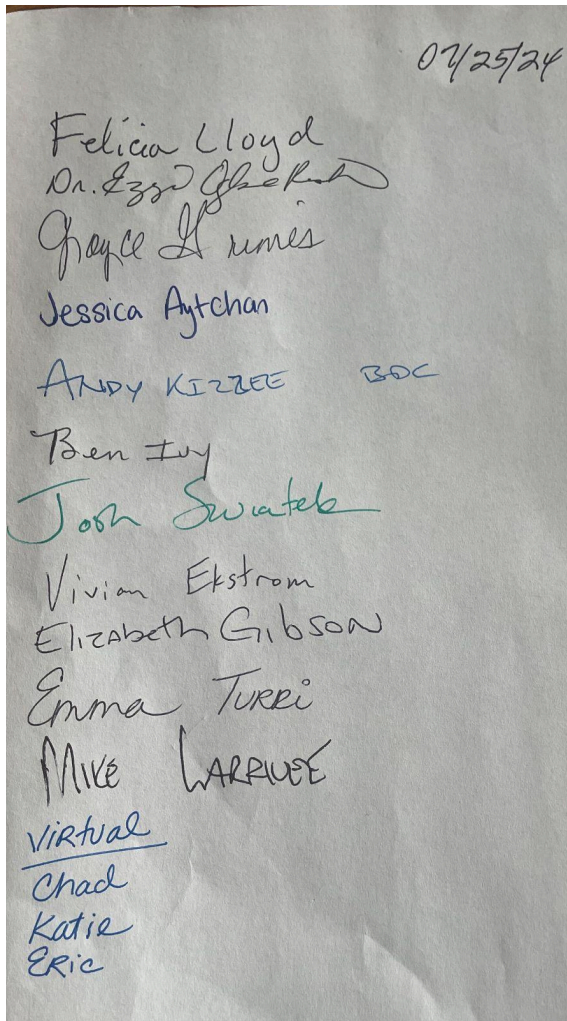 07/25/24
Felicia Lloyd
Dr.
Grayce Grimes
Jessica Aytchan
ANDY KIZZEE BOC
Ben Ivy
Josh Swiatek
Vivian Ekstrom
Elizabeth Gibson
Emma Turri
MIKE LARRIVEE
Virtual
Chad
Katie
Eric